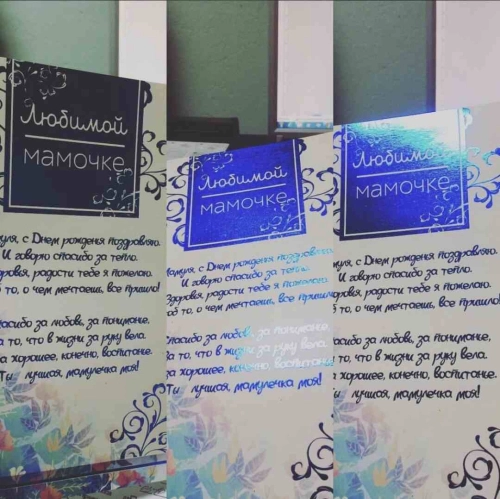 Любимой
мамочке
муля, с Днем рожденя поздравляю.
И говорю спасибо за тепло.
доровья, радости тебе я пожелаю.
то, о чем мечтаешь, все пришло!
пасибо за любовь, за понимание,
а то, что в жизни за руку вела.
а хорошее, конечно, воспитание.
Ты лучшая, мамулечка моя!
Любимой
мамочке
Мамуля, с Днем рожденя поздравляю.
И говорю спасибо за тепло.
Здоровья, радости тебе я пожелаю.
то, о чем мечтаешь, все пришло
Спасибо за любовь, за понимание,
За то, что в жизни за руку вела.
За хорошее, конечно, воспитание.
Ты лучшая, мамулечка моя!
Любимой
мамочке
муля, с Днем рожденя поздравляю.
И говорю спасибо за тепло.
доровья, радости тебе я пожелаю.
то, о чем мечтаешь, все пришло!
пасибо за любовь, за понимание,
а то, что в жизни за руку вела.
а хорошее, конечно, воспитание.
Ты лучшая, мамулечка моя!